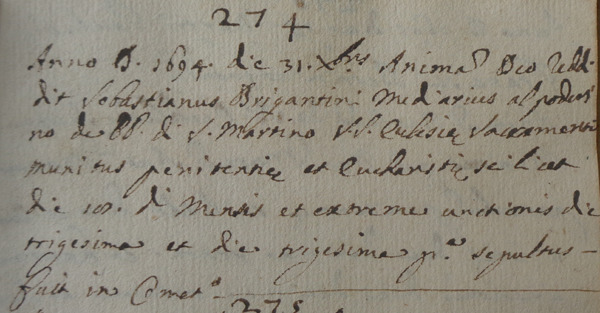 274
Anno D. 1694. die 31. Xbris Anima Deo Reddi-
dit Sebastianus Brigantini Mediarius al poderi
no de PP. di S. Martino SS. Eclisię Sacramenti
munitus penitentię et Eucharistię scilicet
die 10. di Mensis et extreme unctionis die
trigesima et die trigesima p.a sepultus
fuit in Cemet.o
275